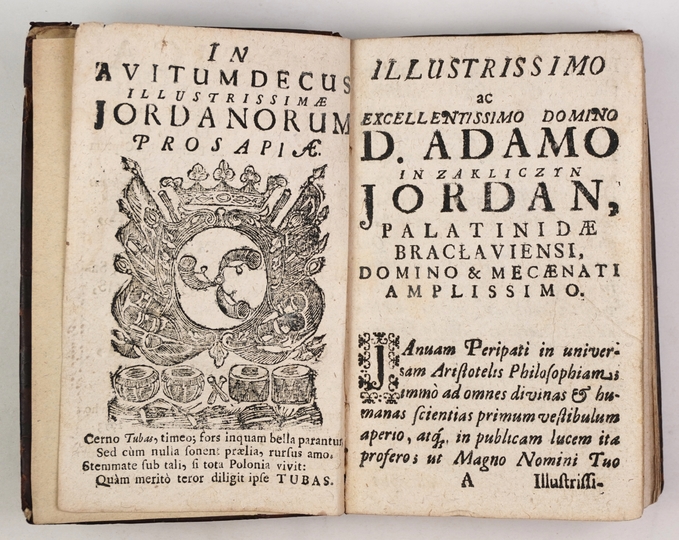 IN
AVITUM DECUS
ILLUSTRISSIMÆ
JORDANORUM
PROSAPIÆ.
Cerno Tubas, timeo; fors inquam bella parantur
Sed cùm nulla sonent prælia, rursus amo.
Stemmate sub tali, si tota Polonia vivit:
Quàm meritò teror diligit ipse TUBAS.
ILLUSTRISSIMO
ac
EXCELLENTISSIMO DOMINO
D. ADAMO
IN ZAKLICZYN
JORDAN,
PALATINIDÆ
BRACŁAVIENSI,
DOMINO & MECÆNATI
AMPLISSIMO.
JAnuam Peripati in univer-
sam Aristotelis Philosophiam;
immò ad omnes divinas & hu-
manas scientias primum vestibulum
aperio, atq;, in publicam lucem ita
profero; ut Magno Nomini Tuo
A Illustrissi-